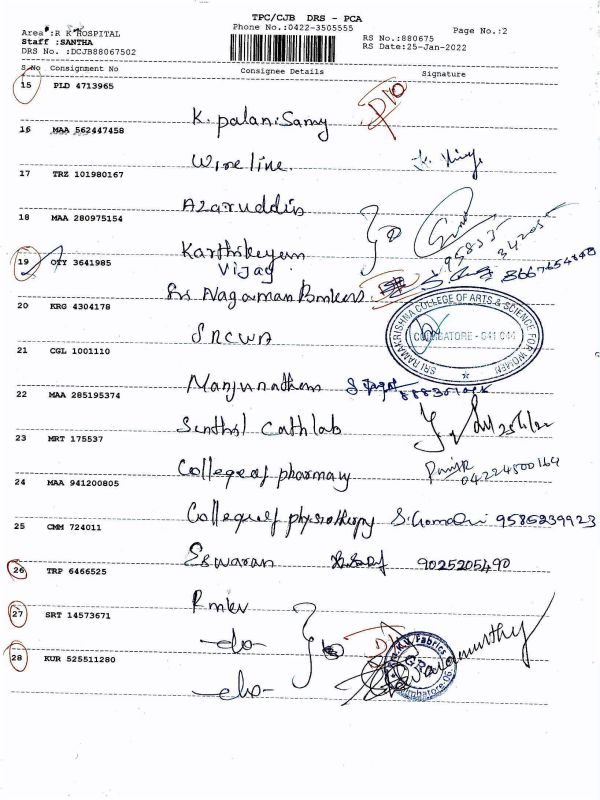 TPC/CJB DRS - PCA
Area :R K HOSPITAL
Phone No.:0422-3505555
Page No.:2
Staff :SANTHA
RS No.:880675
DRS No. :DCJB88067502
RS Date:25-Jan-2022
S.No Consignment No Consignee Details Signature
15 PLD 4713965
K. palaniSamy
16 MAA 562447458
Wireline.
17 TRZ 101980167
Azaruddin
18 MAA 280975154
Karthikeyan
95855 34205
19 OTY 3641985
Vijay
Sri Nagarman Brokers
8667654848
20 KRG 4304178
SRCWA
SRI RAMAKRISHNA COLLEGE OF ARTS & SCIENCE FOR WOMEN
COIMBATORE - 641 044
21 CGL 1001110
Manjunathan
22 MAA 285195374
Senthil Cathlab
25/1/22
23 MRT 175537
College of pharmacy
04224500164
24 MAA 941200805
College of physiotherapy 9585239923
25 CMM 724011
Eswaran 9025205490
26 TRP 6466525
Rmkv
27 SRT 14573671
-do-
28 KUR 525511280
-do-